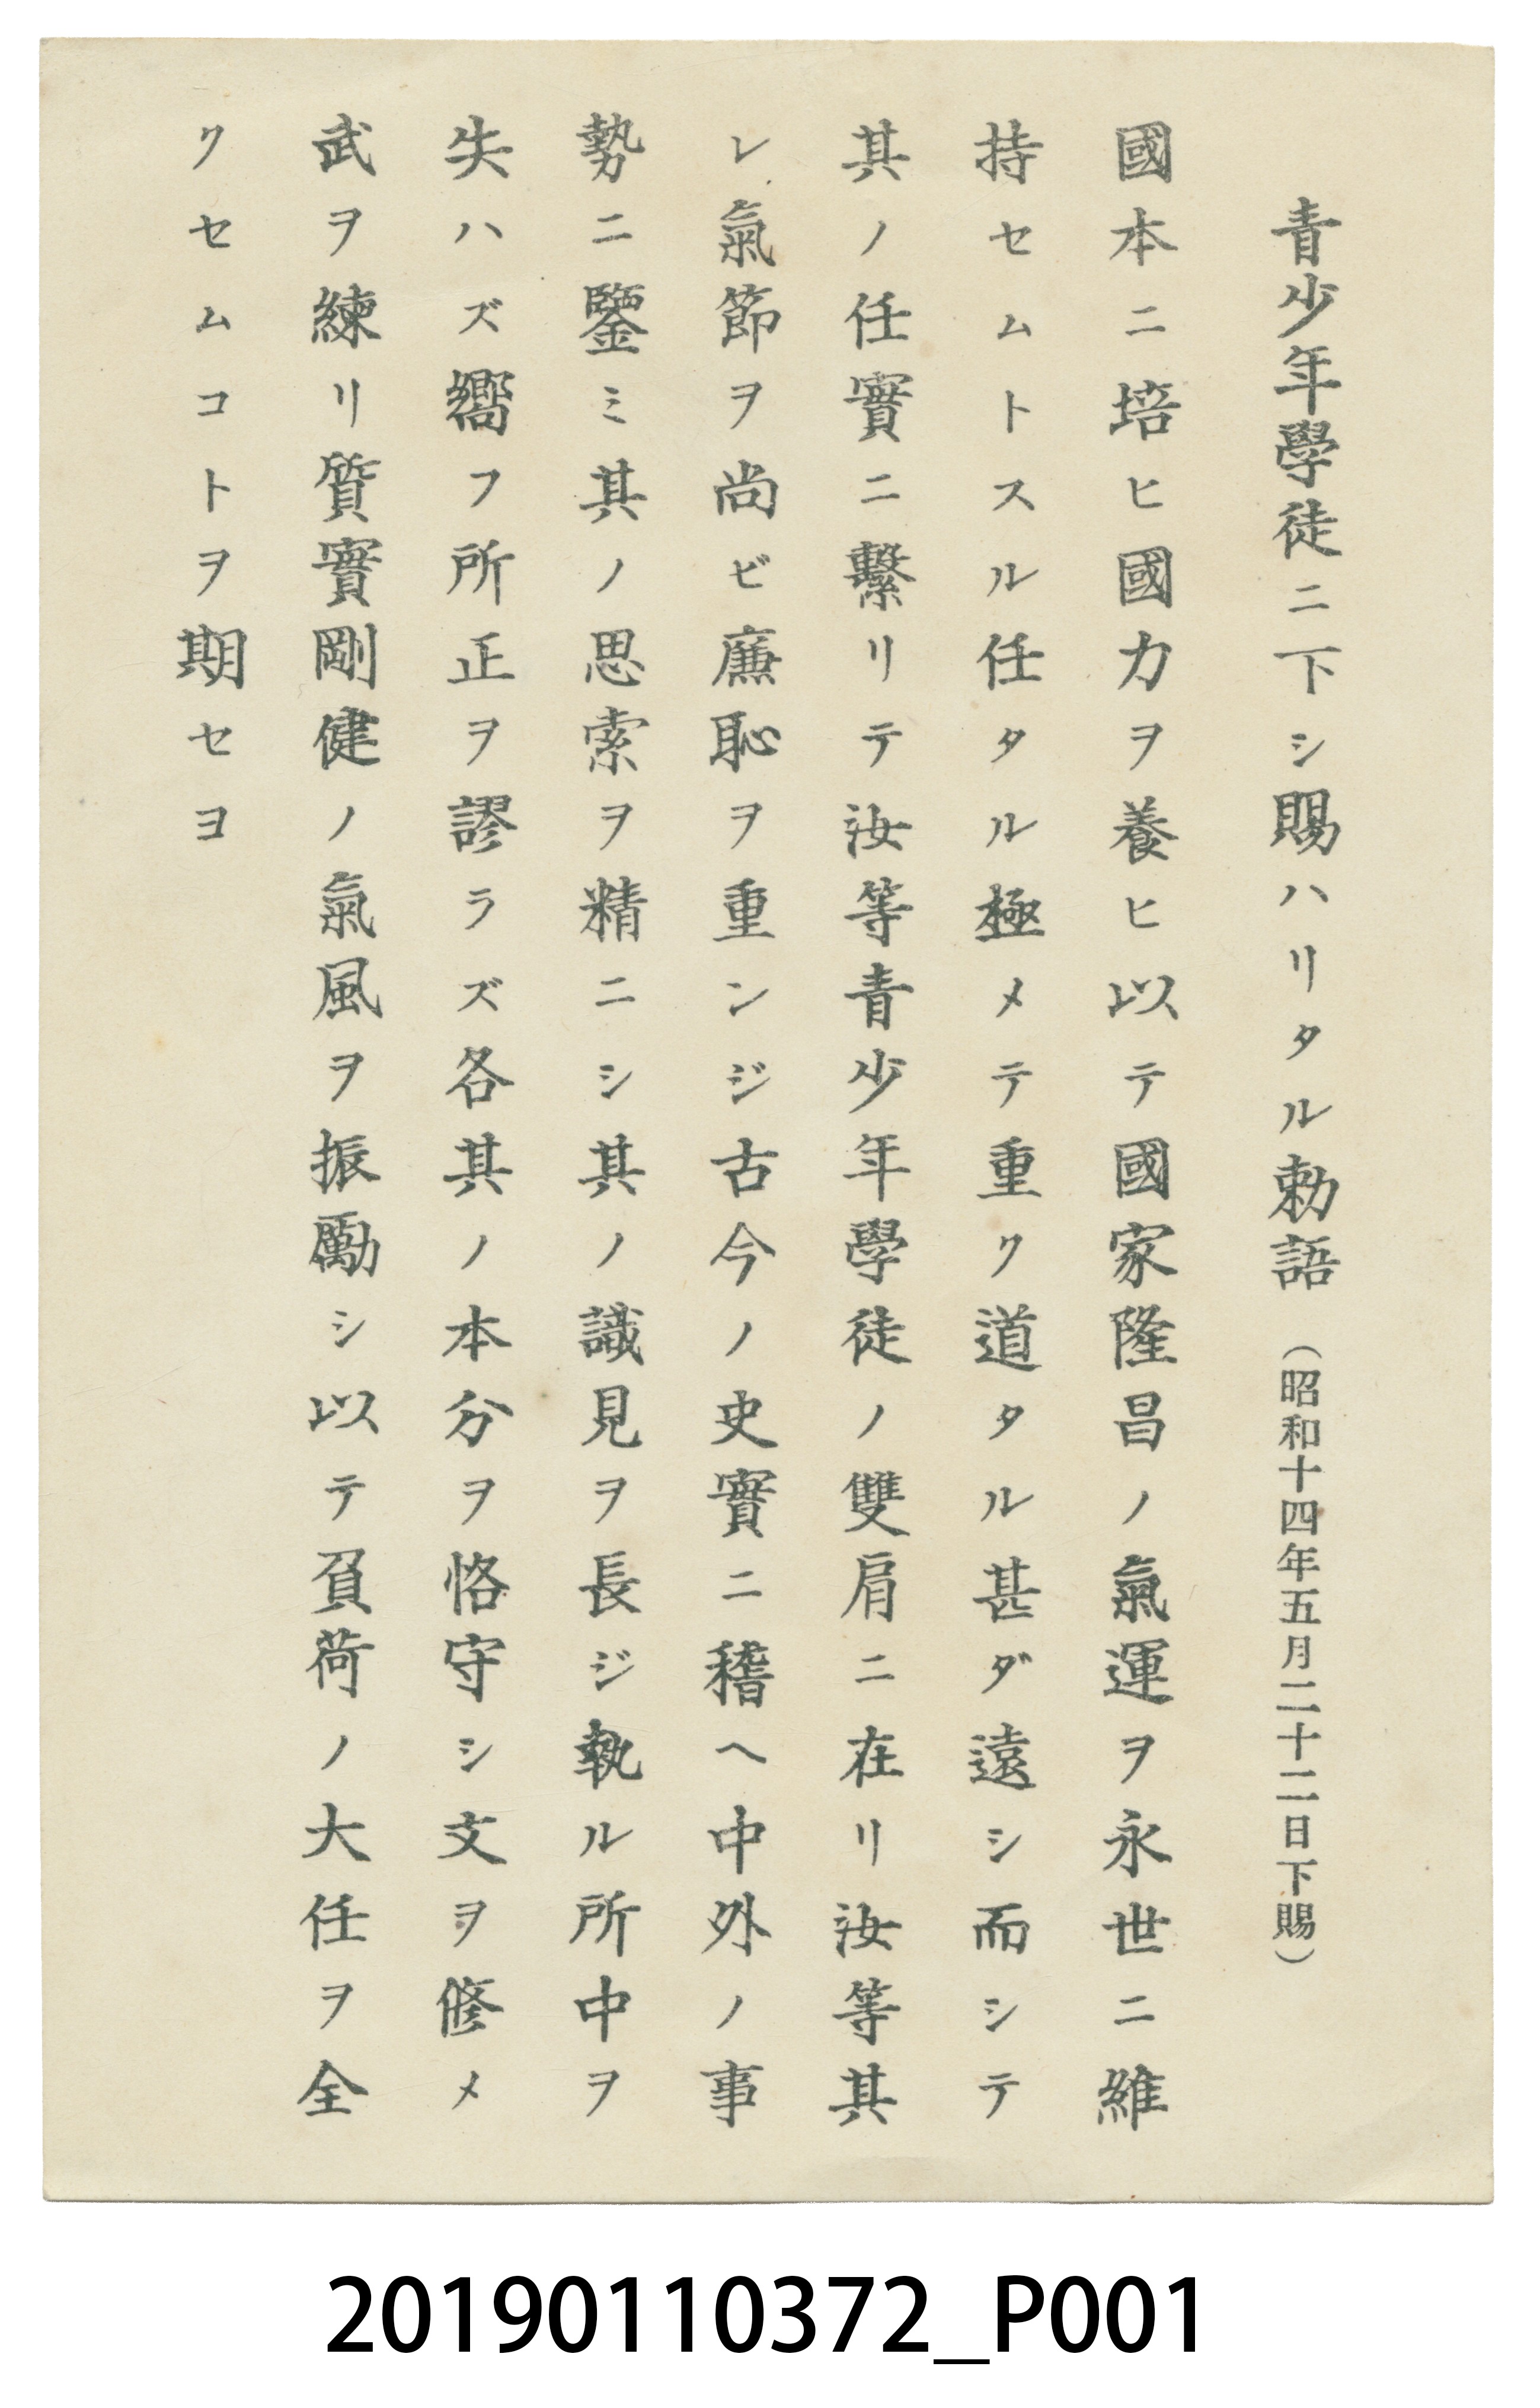 青少年學徒ニ下シ賜ハリタル勅語 (昭和十四年五月二十二日下賜)
國本ニ培ヒ國力ヲ養ヒ以テ國家隆昌ノ氣運ヲ永世ニ維
持セムトスル任タル極メテ重ク道タル甚ダ遠シ而シテ
其ノ任實ニ繫リテ汝等青少年學徒ノ雙肩ニ在リ汝等其
レ氣節ヲ尚ビ廉恥ヲ重ンジ古今ノ史實ニ稽ヘ中外ノ事
勢ニ鑒ミ其ノ思索ヲ精ニシ其ノ識見ヲ長ジ執ル所中ヲ
失ハズ嚮フ所正ヲ謬ラズ各其ノ本分ヲ恪守シ文ヲ修メ
武ヲ練リ質實剛健ノ氣風ヲ振勵シ以テ負荷ノ大任ヲ全
クセムコトヲ期セヨ
20190110372_P001